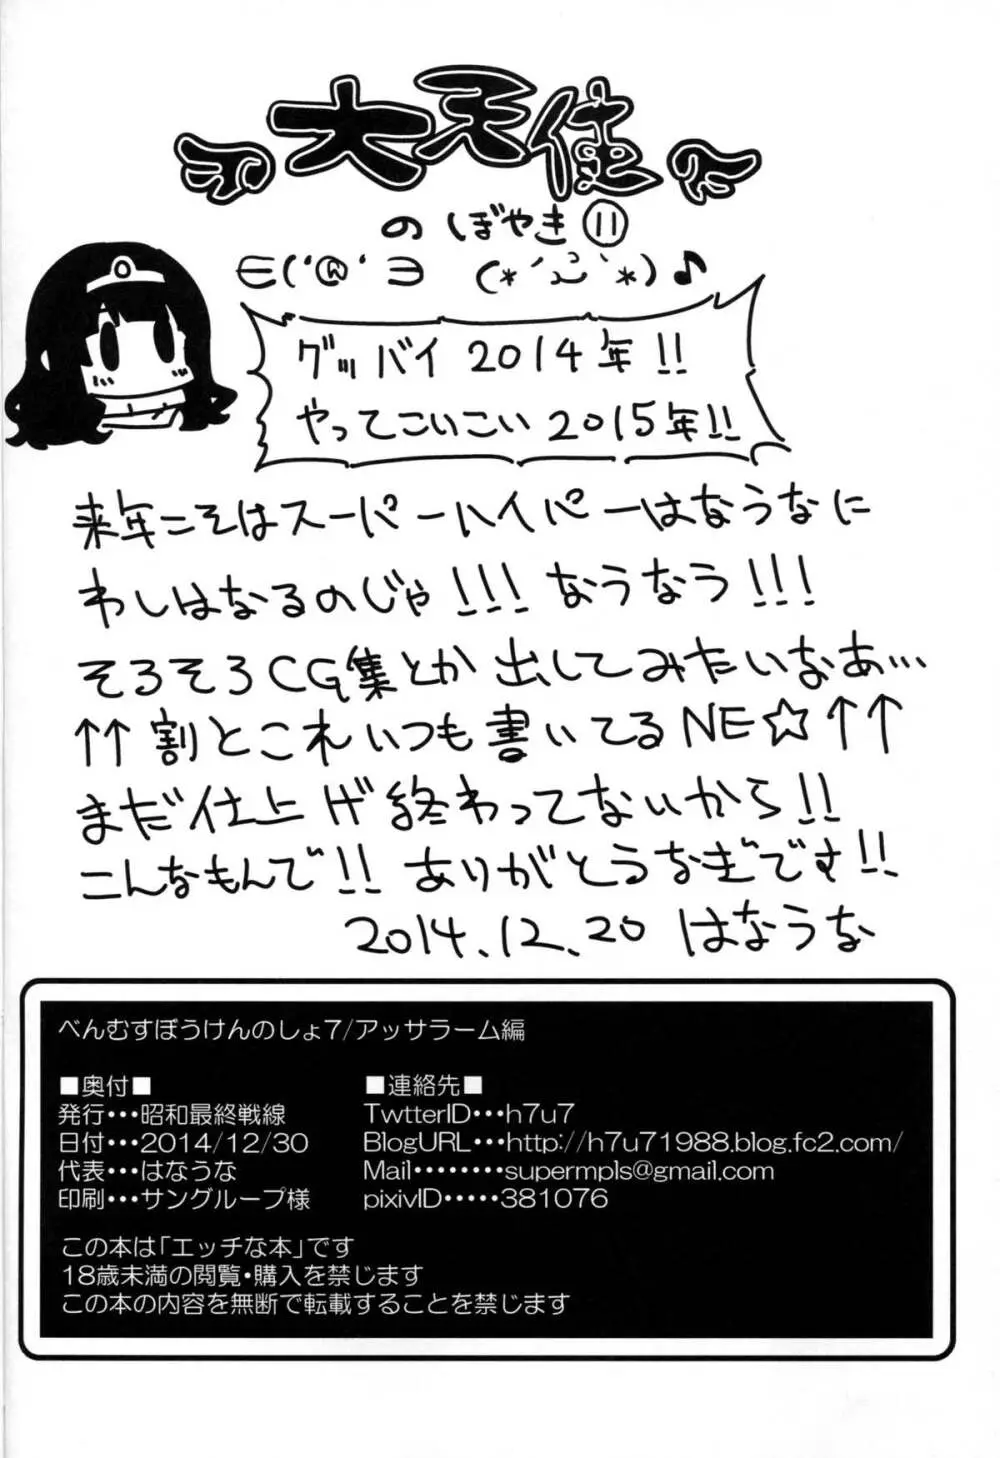 大天使
のぼやき⑪
∈('@'∋ (*´`*)♪
グッバイ2014年!!
やってこいこい2015年!!
来年こそはスーパーハイパーはなうなに
わしはなるのじゃ!!! なうなう!!!
そろそろCG集とか出してみたいなあ…
↑↑割とこれいつも書いてるNE☆↑↑
まだ仕上げ終わってないから!!
こんなもんで!! ありがとうなぎです!!
2014.12.20 はなうな
べんむすぼうけんのしょ7/アッサラーム編
■奥付■
発行・・・昭和最終戦線
日付・・・2014/12/30
代表・・・はなうな
印刷・・・サングループ様
■連絡先■
TwtterID・・・h7u7
BlogURL・・・http://h7u71988.blog.fc2.com/
Mail・・・・・・・・supermpls@gmail.com
pixivID・・・・・381076
この本は「エッチな本」です
18歳未満の閲覧・購入を禁じます
この本の内容を無断で転載することを禁じます